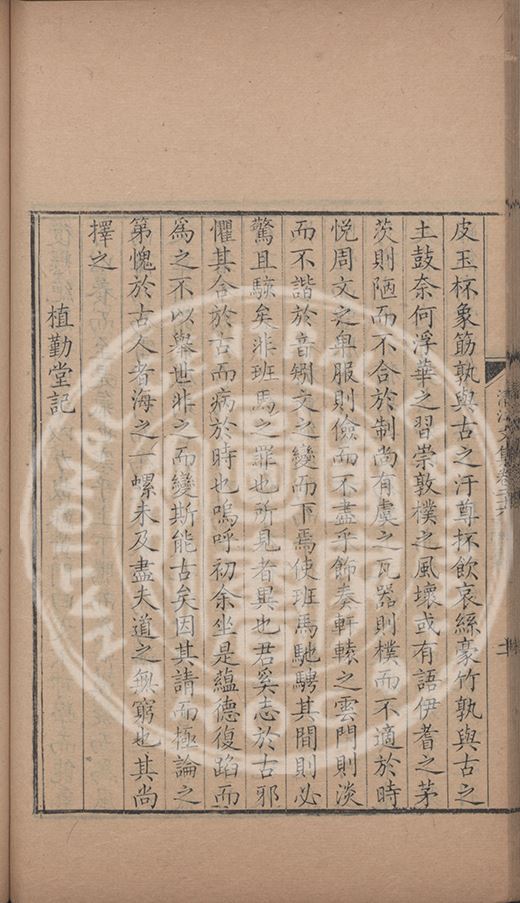 皮玉杯象筯孰與古之汙尊抔飲哀絲豪竹孰與古之
土鼓奈何浮華之習崇敦樸之風壞或有語伊耆之茅
茨則陋而不合於制尚有虞之瓦器則樸而不適於時
悅周文之卑服則儉而不盡乎飾奏軒轅之雲門則淡
而不諧於音矧文之變而下焉使班馬馳騁其間則必
驚且駭矣非班馬之罪也所見者異也君奚志於古邪
懼其合於古而病於時也嗚呼初余坐是蘊德復蹈而
為之不以舉世非之而變斯能古矣因其請而極論之
第愧於古人者海之一螺未及盡夫道之無窮也其尚
擇之
植勤堂記